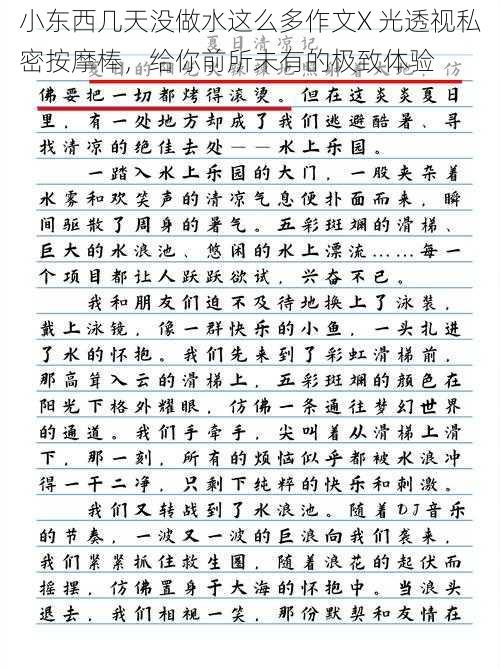 小东西几天没做水这么多作文X 光透视私
密按摩棒，给你前所未有的极致体验
夏日清凉记
佛要把一切都烤得滚烫。但在这炎炎夏日
里，有一处地方却成了我们逃避酷暑、寻
找清凉的绝佳去处——水上乐园。
一踏入水上乐园的大门，一股夹杂着
水雾和欢笑声的清凉气息便扑面而来，瞬
间驱散了周身的暑气。五彩斑斓的滑梯、
巨大的水浪池、悠闲的水上漂流……每一
个项目都让人跃跃欲试，兴奋不已。
我和朋友们迫不及待地换上了泳装，
戴上泳镜，像一群快乐的小鱼，一头扎进
了水的怀抱。我们先来到了彩虹滑梯前，
那高耸入云的滑梯上，五彩斑斓的颜色在
阳光下格外耀眼，仿佛一条通往梦幻世界
的通道。我们手牵手，尖叫着从滑梯上滑
下，那一刻，所有的烦恼似乎都被水浪冲
得一干二净，只剩下纯粹的快乐和刺激。
我们又转战到了水浪池。随着DJ音乐
的节奏，一波又一波的巨浪向我们袭来，
我们紧紧抓住救生圈，随着浪花的起伏而
摇摆，仿佛置身于大海的怀抱中。当浪头
退去，我们相视一笑，那份默契和友情在